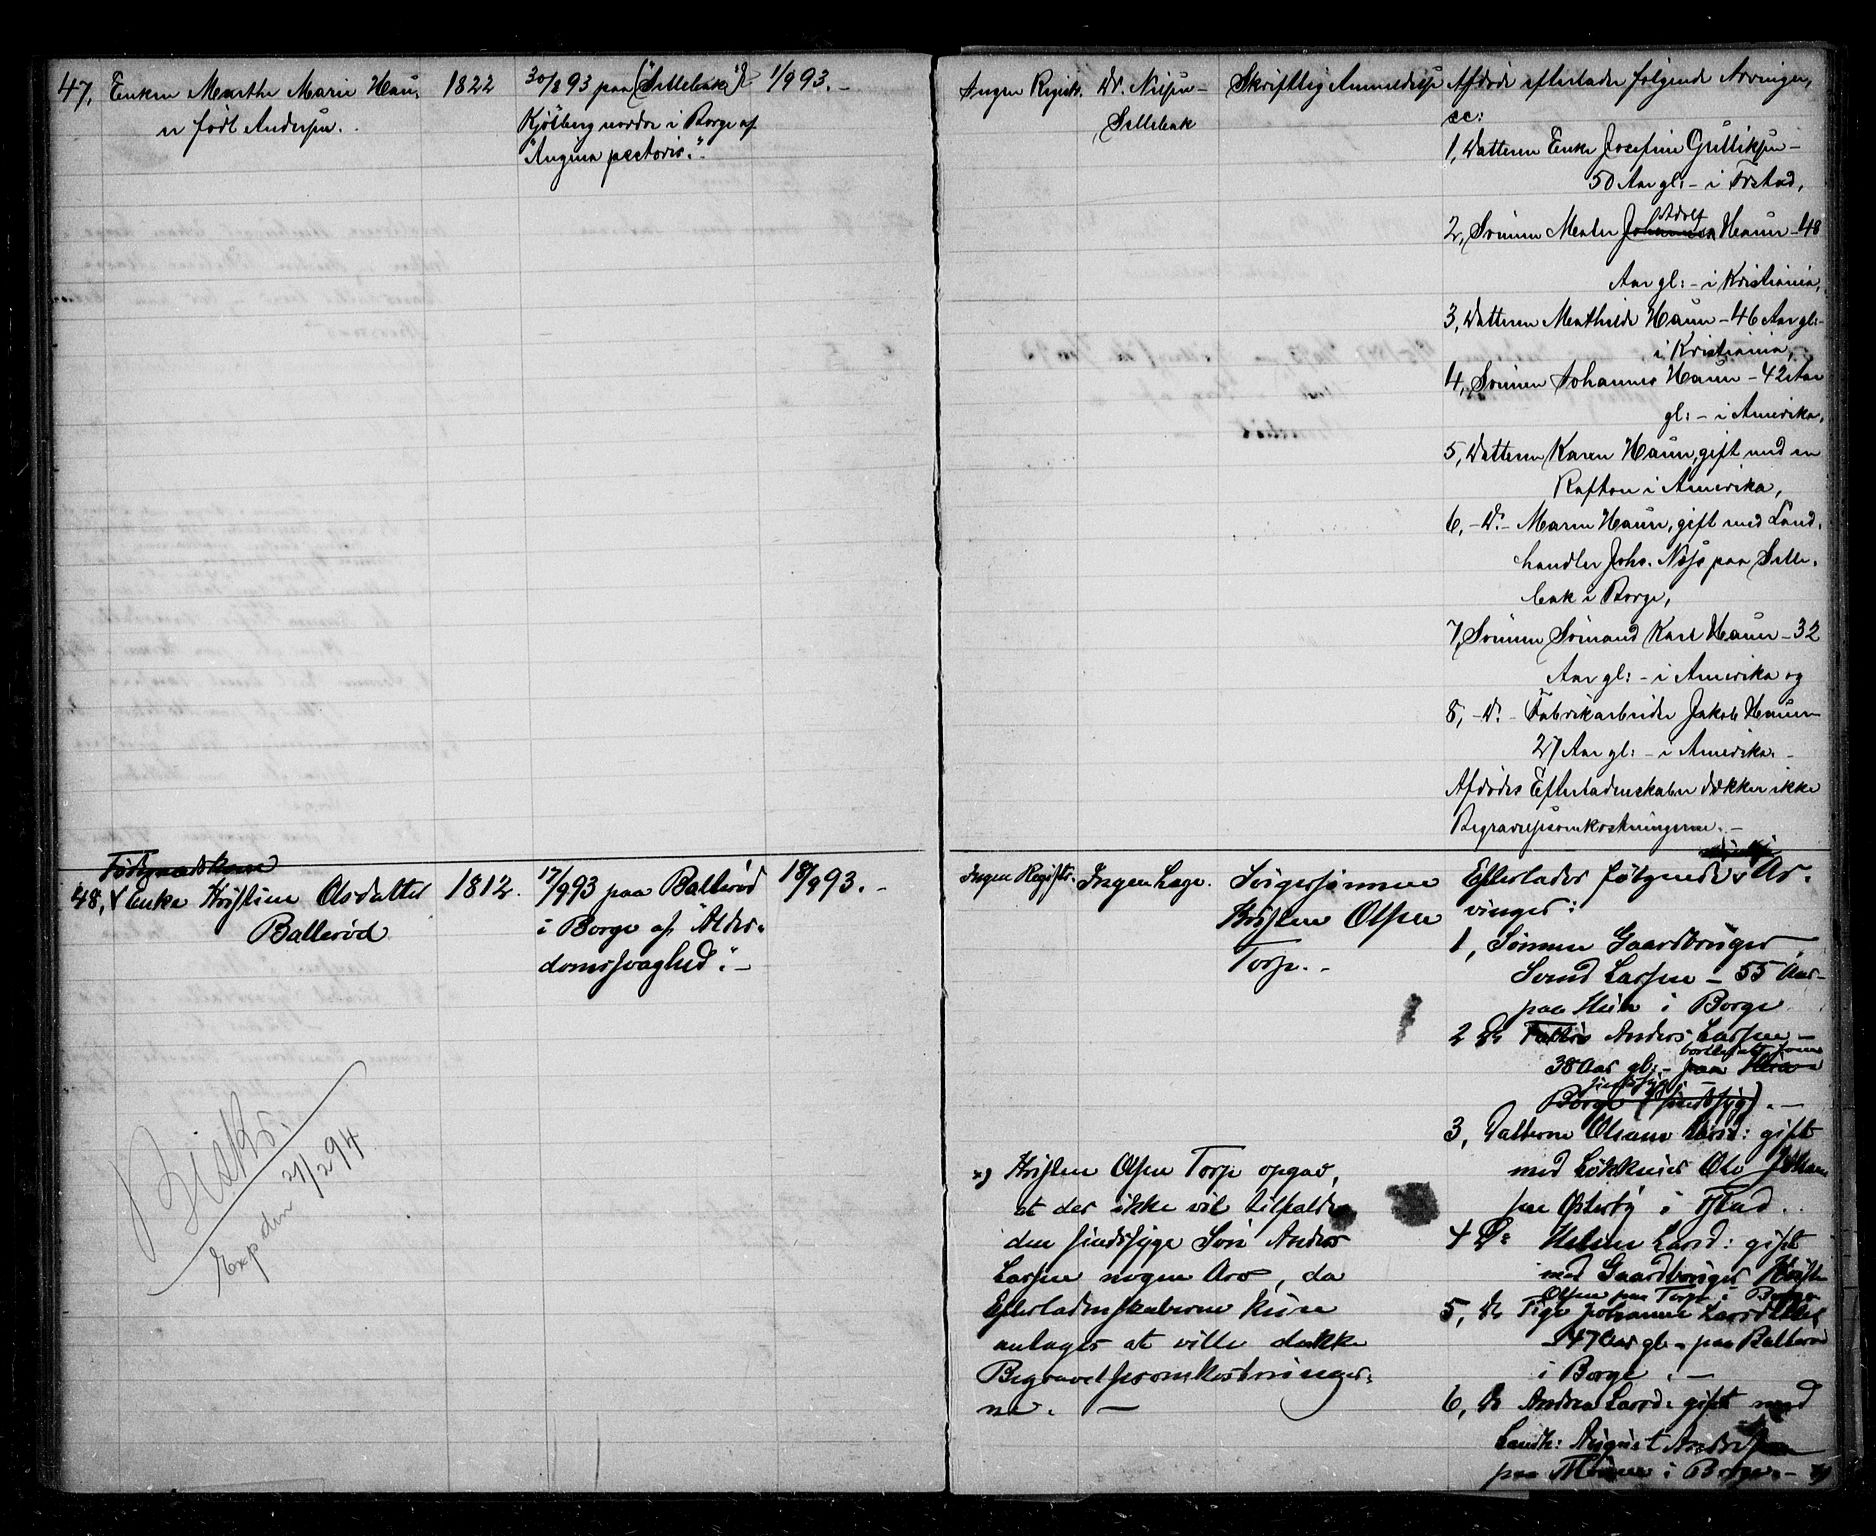 47, Enken Marthe Marie Hau-
er født Andersen.
1822
30/8 93 paa (Sellebak)
Kjølberg nordre i Borge af
"Angina pectoris."
1/9 93.-
Ingen Regist.
Dr. Nilsen-
Sellebak
Skriftlig Anmeldelse
Afdøde efterlader følgende Arvinger,
sc:
1, Datteren Enke Josefine Gulliksen -
50 Aar gl: - i F.stad,
2, Sønnen Maler Johannes Adolf Hauer - 48
Aar gl: - i Kristiania,
3, Datteren Mathilde Hauer - 46 Aar gl: -
i Kristiania,
4, Sønnen Johannes Hauer - 42 Aar
gl: - i Amerika,
5, Datteren Karen Hauer, gift med en
Rafton i Amerika,
6, - Do - Maren Hauer, gift med Land-
handler Johs. Næs paa Selle-
bak i Borge,
7, Sønnen Sømand Karl Hauer - 32
Aar gl: - i Amerika og
8, - Do - Fabrikarbeider Jakob Hauer
27 Aar gl: - i Amerika. -
Afdødes Efterladenskaber dækker ikke
Begravelsesomkostningerne. -
Fødgraadskone
48, Enke Kristine Olsdatter
Ballerød
1812.
17/9 93 paa Ballerød
i Borge af "Alder-
domssvaghed". -
18/9 93. -
Ingen Registr.
Ingen Læge.
Svigersønnen
Kristen Olsen
Torp. -
Efterlader følgende Ar-
vinger:
1, Sønnen Gaardbruger
Svend Larsen - 55 Aar -
paa Hun i Borge
2 Do Anders Larsen -
38 Aar gl: - bortsat som
paa Hun i
sindssyg
Borge (sindssyg). -
3, Datteren Olsine Larsd: gift
med Løkkeeier Ole Johan-
sen Østerby i F.stad.
4 Do Helene Larsd: gift
med Gaardbruger Kristen
Olsen paa Torp i Borge
5, Do Pige Johanne Larsdatter
- 47 Aar gl - paa Ballerød
i Borge. -
6, Do Andrea Larsd: gift med
Landh: August Andersen
paa Moum i Borge. - x)
x) Kristen Olsen Torp opgav,
at der ikke vil tilfalde
den sindssyge Søn Anders
Larsen nogen Arv, da
Efterladenskaberne kun
antages at ville dække
Begravelsesomkostninger-
ne. -
Beskr.
Exp den 21/2 94.